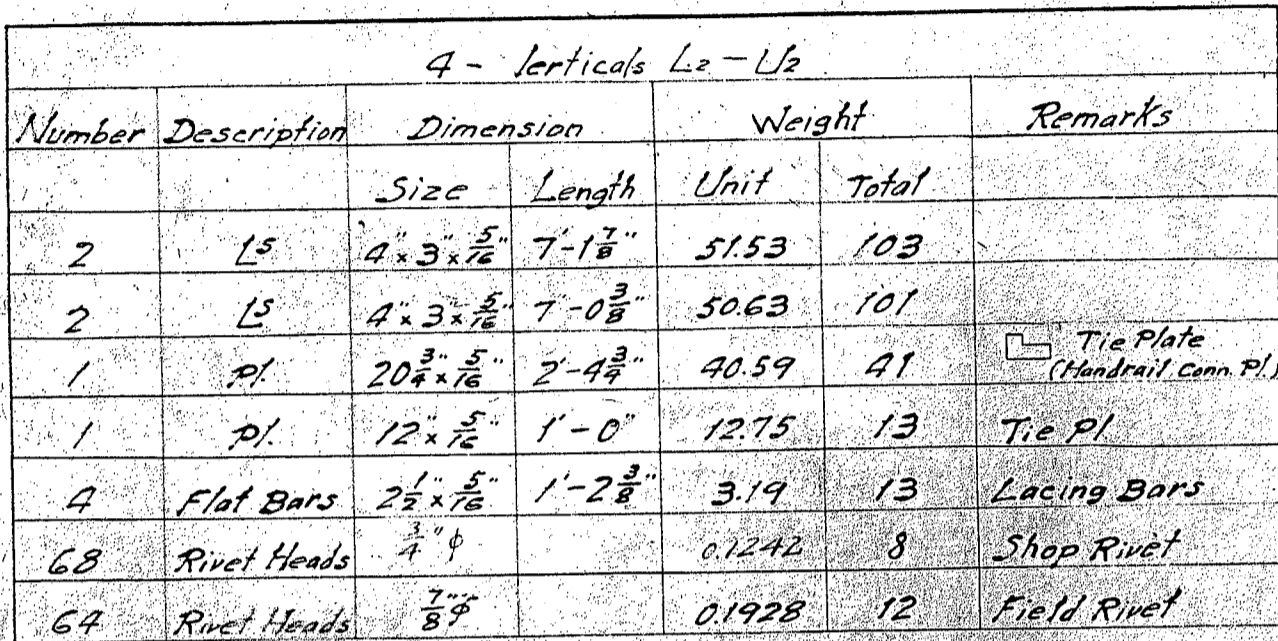 4 - Verticals L2 - U2
Number Description Dimension Weight Remarks
Size Length Unit Total
2 Ls 4" x 3" x 5/16" 7'-1 7/8" 51.53 103
2 Ls 4" x 3" x 5/16" 7'-0 3/8" 50.63 101
1 Pl. 20 3/4" x 5/16" 2'-4 3/4" 40.59 41 Tie Plate
(Handrail Conn. Pl.)
1 Pl. 12" x 5/16" 1'-0" 12.75 13 Tie Pl
4 Flat Bars 2 1/2" x 5/16" 1'-2 3/8" 3.19 13 Lacing Bars
68 Rivet Heads 3/4" φ 0.1242 8 Shop Rivet
64 Rivet Heads 7/8" φ 0.1928 12 Field Rivet